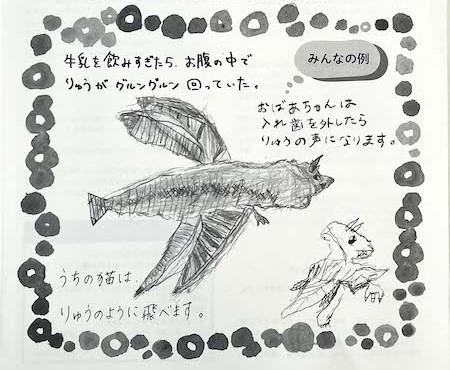 牛乳を飲みすぎたら、お腹の中で
りゅうがグルングルン回っていた。
みんなの例
おばあちゃんは
入れ歯を外したら
りゅうの声になります。
うちの猫は、
りゅうのように飛べます。